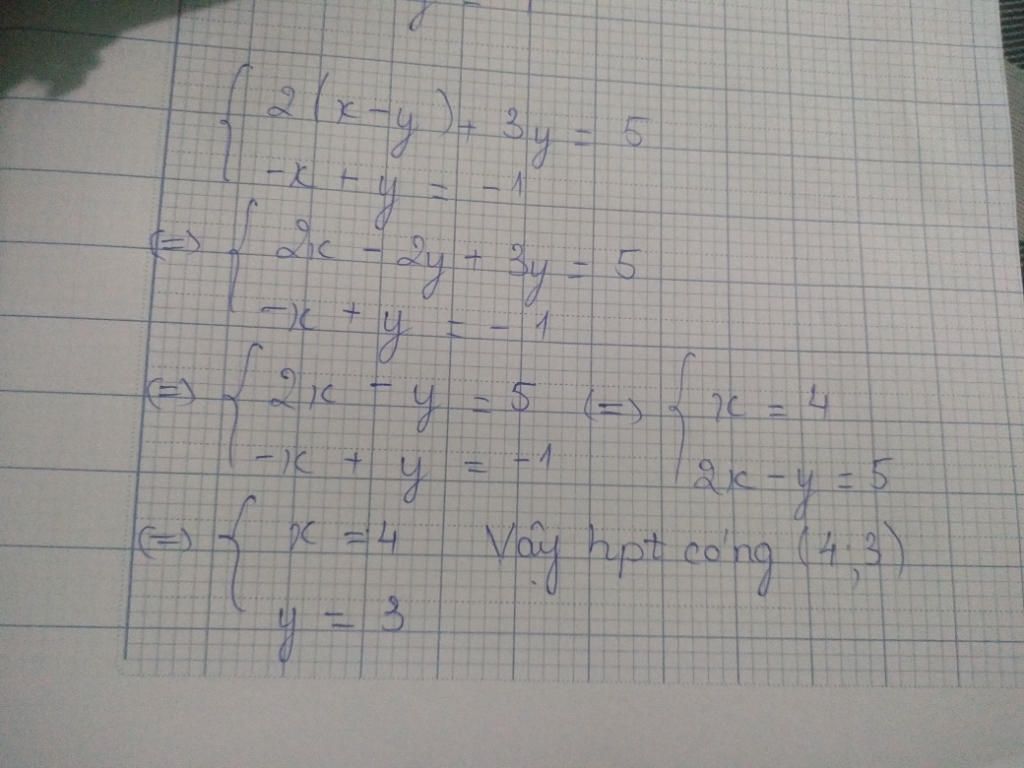 2(x-y) + 3y = 5
-x + y = -1
(=) 2x - 2y + 3y = 5
-x + y = -1
(=) 2x - y = 5 (=) x = 4
-x + y = -1 2x - y = 5
(=) x = 4 Vậy hpt có ng (4;3)
y = 3